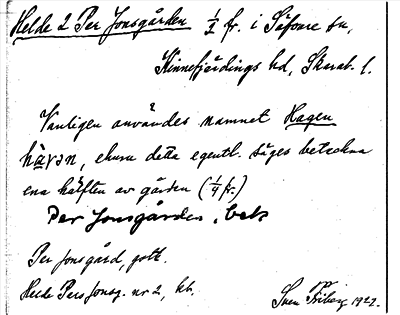 Helde 2 Per Jonsgården 1/2 fr. i Säfvare sn,
Kinnefjärdings hd, Skarab. l.
Vanligen användes namnet Hagen
hāγən, ehuru detta egentl. säges beteckna
ena hälften av gården (1/4 fr.)
Per Jonsgården, bek
Per Jonsgård, gott.
Helde Pers Jonsg. nr 2, kb.
Sven Friberg 1922.